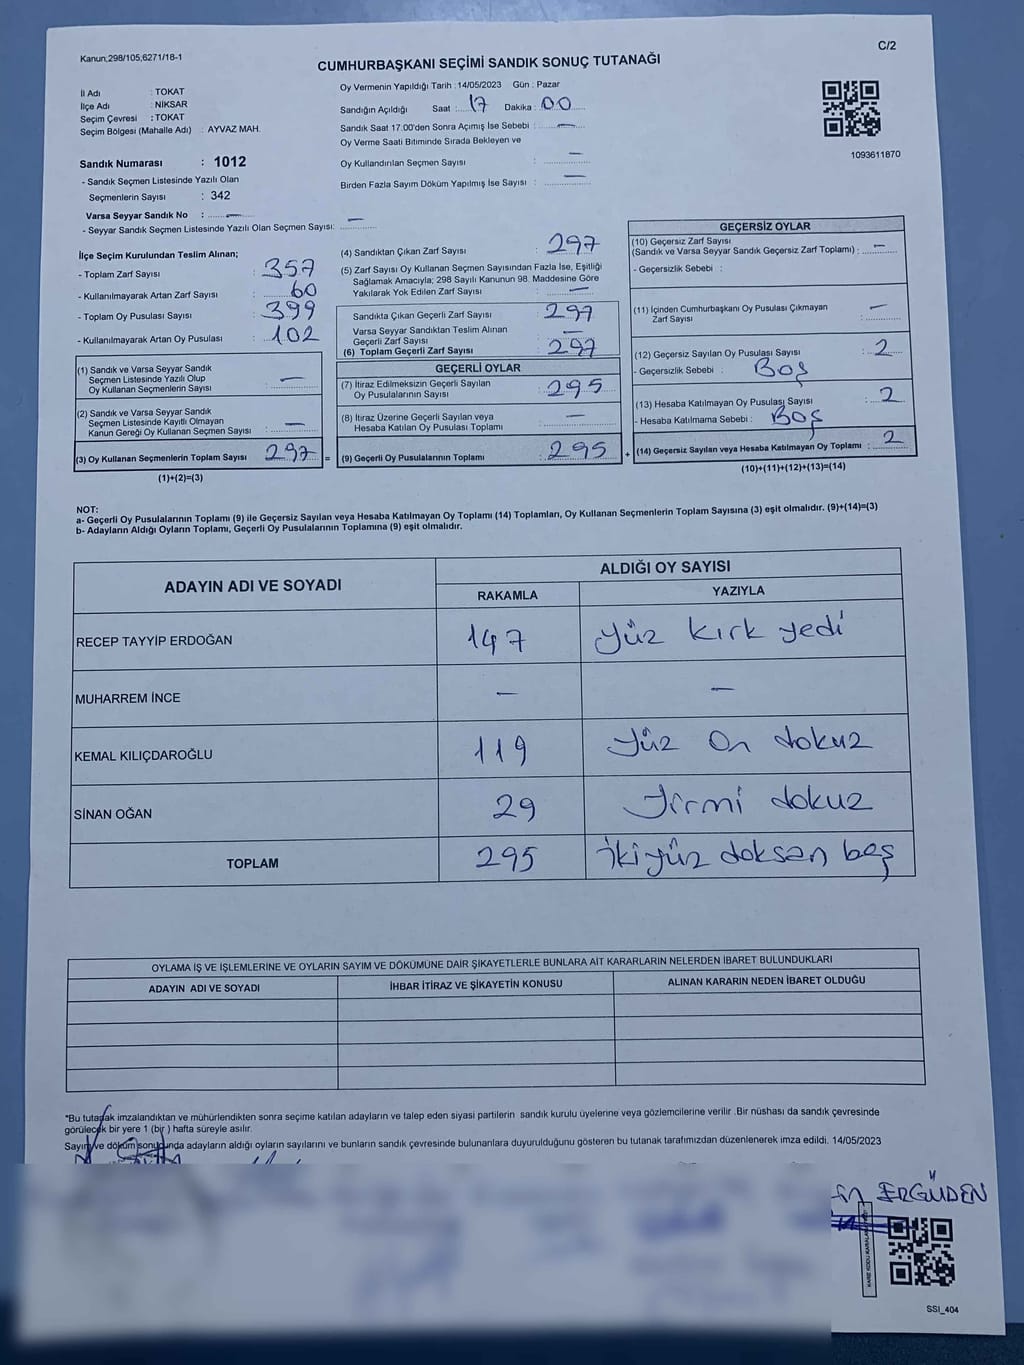 Kanun;298/105;6271/18-1
C/2
CUMHURBAŞKANI SEÇİMİ SANDIK SONUÇ TUTANAĞI
İl Adı : TOKAT
İlçe Adı : NİKSAR
Seçim Çevresi : TOKAT
Seçim Bölgesi (Mahalle Adı) : AYVAZ MAH.
Sandık Numarası : 1012
- Sandık Seçmen Listesinde Yazılı Olan
Seçmenlerin Sayısı : 342
Varsa Seyyar Sandık No : —
- Seyyar Sandık Seçmen Listesinde Yazılı Olan Seçmen Sayısı: —
Oy Vermenin Yapıldığı Tarih : 14/05/2023 Gün : Pazar
Sandığın Açıldığı Saat : 17 Dakika : 00
Sandık Saat 17:00'den Sonra Açımış İse Sebebi : —
Oy Verme Saati Bitiminde Sırada Bekleyen ve
Oy Kullandırılan Seçmen Sayısı : —
Birden Fazla Sayım Döküm Yapılmış İse Sayısı : —
1093611870
İlçe Seçim Kurulundan Teslim Alınan;
- Toplam Zarf Sayısı : 357
- Kullanılmayarak Artan Zarf Sayısı : 60
- Toplam Oy Pusulası Sayısı : 399
- Kullanılmayarak Artan Oy Pusulası : 102
(1) Sandık ve Varsa Seyyar Sandık
Seçmen Listesinde Yazılı Olup
Oy Kullanan Seçmenlerin Sayısı : —
(2) Sandık ve Varsa Seyyar Sandık
Seçmen Listesinde Kayıtlı Olmayan
Kanun Gereği Oy Kullanan Seçmen Sayısı : —
(3) Oy Kullanan Seçmenlerin Toplam Sayısı 297 =
(1)+(2)=(3)
(4) Sandıktan Çıkan Zarf Sayısı : 297
(5) Zarf Sayısı Oy Kullanan Seçmen Sayısından Fazla İse, Eşitliği
Sağlamak Amacıyla; 298 Sayılı Kanunun 98. Maddesine Göre
Yakılarak Yok Edilen Zarf Sayısı : —
Sandıkta Çıkan Geçerli Zarf Sayısı : 297
Varsa Seyyar Sandıktan Teslim Alınan
Geçerli Zarf Sayısı : —
(6) Toplam Geçerli Zarf Sayısı : 297
GEÇERLİ OYLAR
(7) İtiraz Edilmeksizin Geçerli Sayılan
Oy Pusulasının Sayısı : 295
(8) İtiraz Üzerine Geçerli Sayılan veya
Hesaba Katılan Oy Pusulası Toplamı : —
(9) Geçerli Oy Pusulalarının Toplamı : 295 +
GEÇERSİZ OYLAR
(10) Geçersiz Zarf Sayısı
(Sandık ve Varsa Seyyar Sandık Geçersiz Zarf Toplamı) : —
- Geçersizlik Sebebi :
(11) İçinden Cumhurbaşkanı Oy Pusulası Çıkmayan
Zarf Sayısı : —
(12) Geçersiz Sayılan Oy Pusulası Sayısı : 2
- Geçersizlik Sebebi : Boş
(13) Hesaba Katılmayan Oy Pusulası Sayısı : 2
- Hesaba Katılmama Sebebi : Boş
(14) Geçersiz Sayılan veya Hesaba Katılmayan Oy Toplamı : 2
(10)+(11)+(12)+(13)=(14)
NOT:
a- Geçerli Oy Pusulalarının Toplamı (9) ile Geçersiz Sayılan veya Hesaba Katılmayan Oy Toplamı (14) Toplamları, Oy Kullanan Seçmenlerin Toplam Sayısına (3) eşit olmalıdır. (9)+(14)=(3)
b- Adayların Aldığı Oyların Toplamı, Geçerli Oy Pusulalarının Toplamına (9) eşit olmalıdır.
ADAYIN ADI VE SOYADI ALDIĞI OY SAYISI
RAKAMLA YAZIYLA
RECEP TAYYİP ERDOĞAN 147 yüz kırk yedi
MUHARREM İNCE — —
KEMAL KILIÇDAROĞLU 119 yüz on dokuz
SİNAN OĞAN 29 yirmi dokuz
TOPLAM 295 ikiyüz doksan beş
OYLAMA İŞ VE İŞLEMLERİNE VE OYLARIN SAYIM VE DÖKÜMÜNE DAİR ŞİKAYETLERLE BUNLARA AİT KARARLARIN NELERDEN İBARET BULUNDUKLARI
ADAYIN ADI VE SOYADI İHBAR İTİRAZ VE ŞİKAYETİN KONUSU ALINAN KARARIN NEDEN İBARET OLDUĞU
*Bu tutanak imzalandıktan ve mühürlendikten sonra seçime katılan adayların ve talep eden siyasi partilerin sandık kurulu üyelerine veya gözlemcilerine verilir .Bir nüshası da sandık çevresinde
görülecek bir yere 1 (bir ) hafta süreyle asılır.
Sayım ve döküm sonucunda adayların aldığı oyların sayılarını ve bunların sandık çevresinde bulunanlara duyurulduğunu gösteren bu tutanak tarafımızdan düzenlenerek imza edildi. 14/05/2023
ERGÜDEN
SSI_404